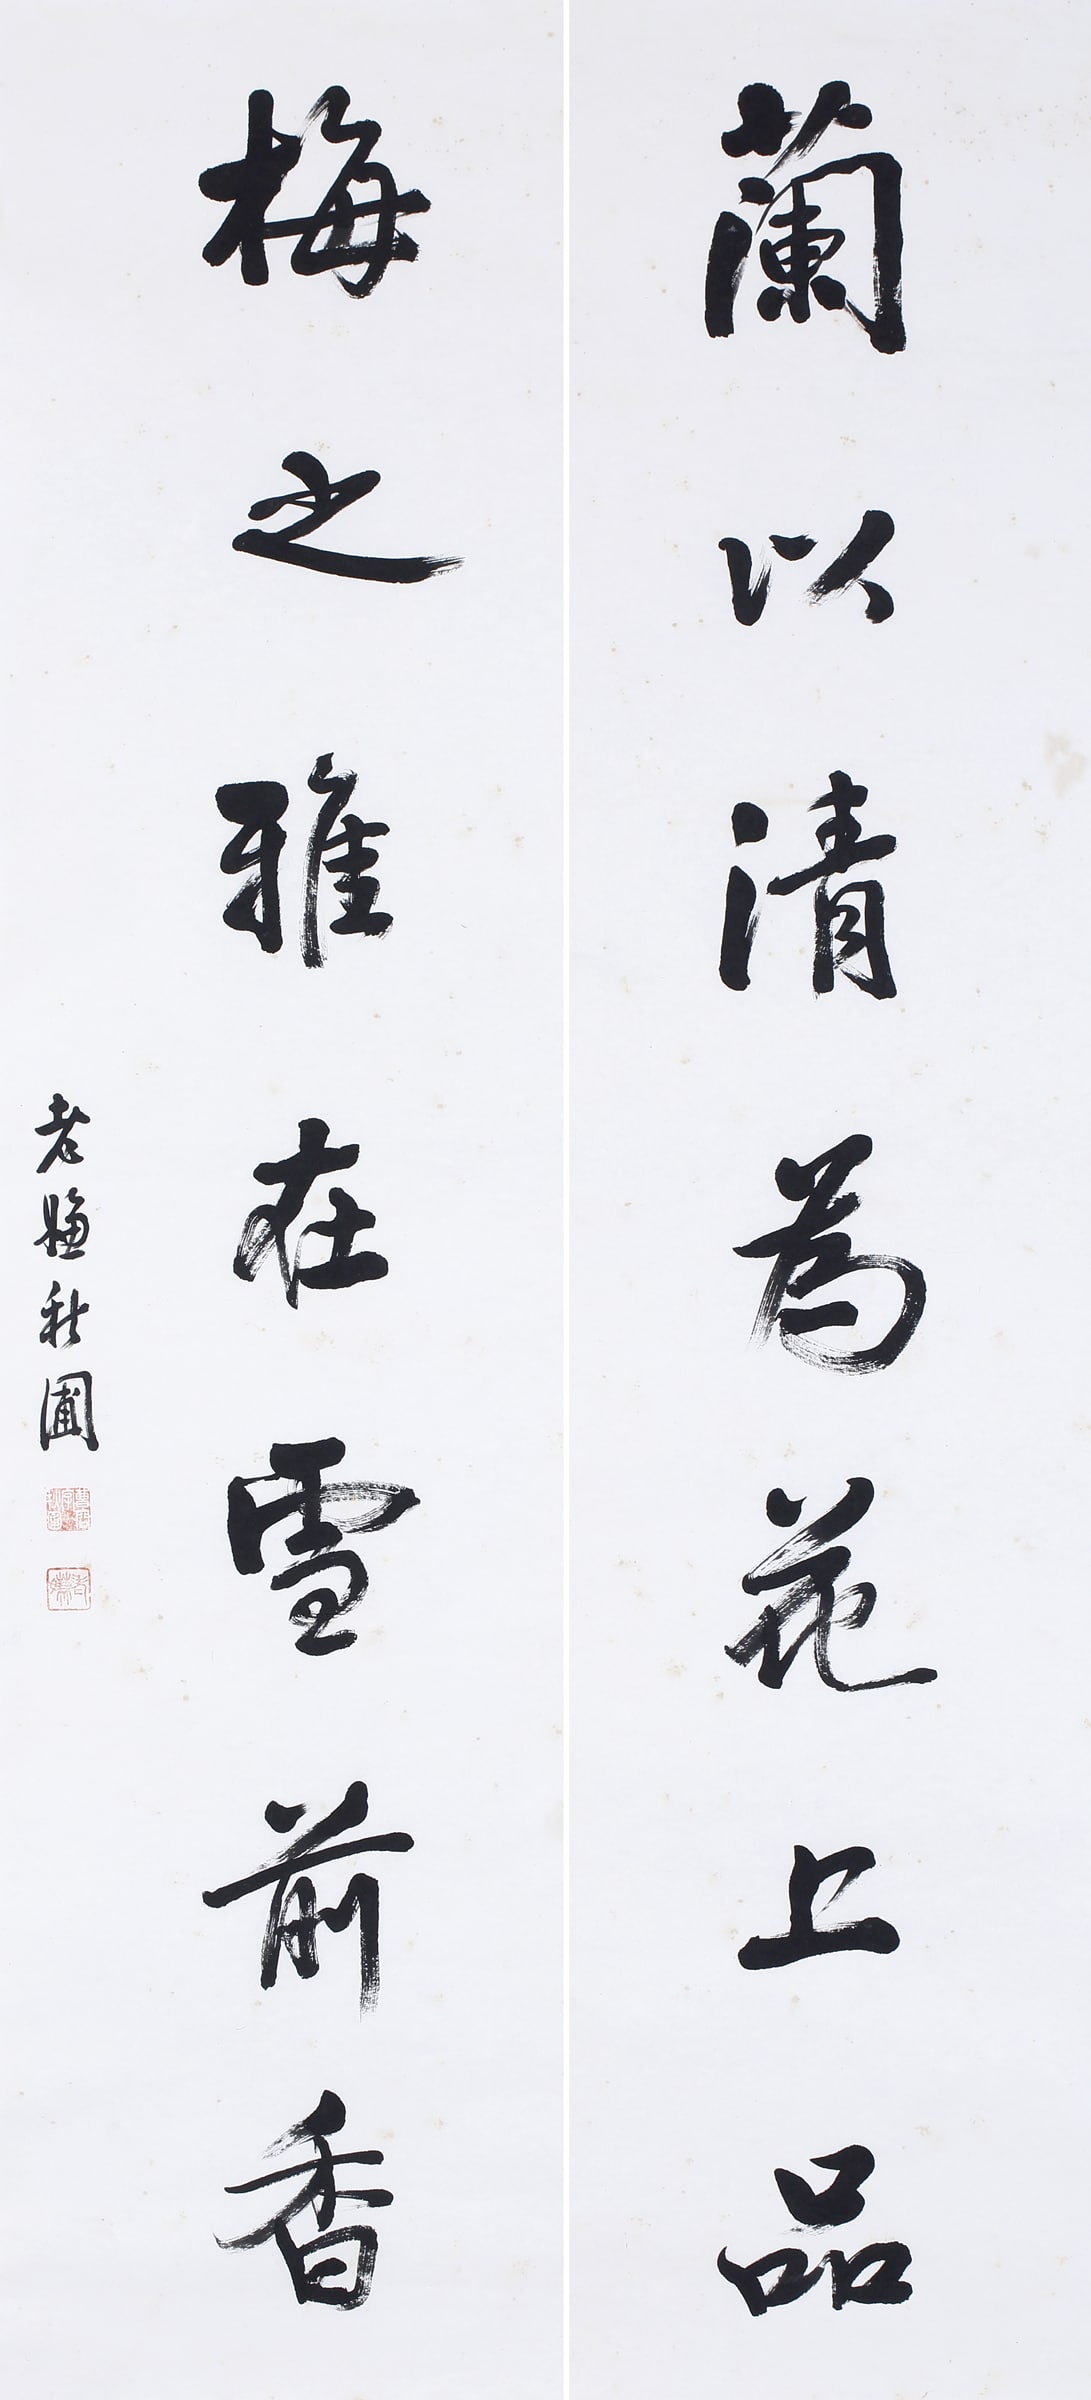 蘭以清為花上品
梅之雅在雪前香
老嫌秋圃